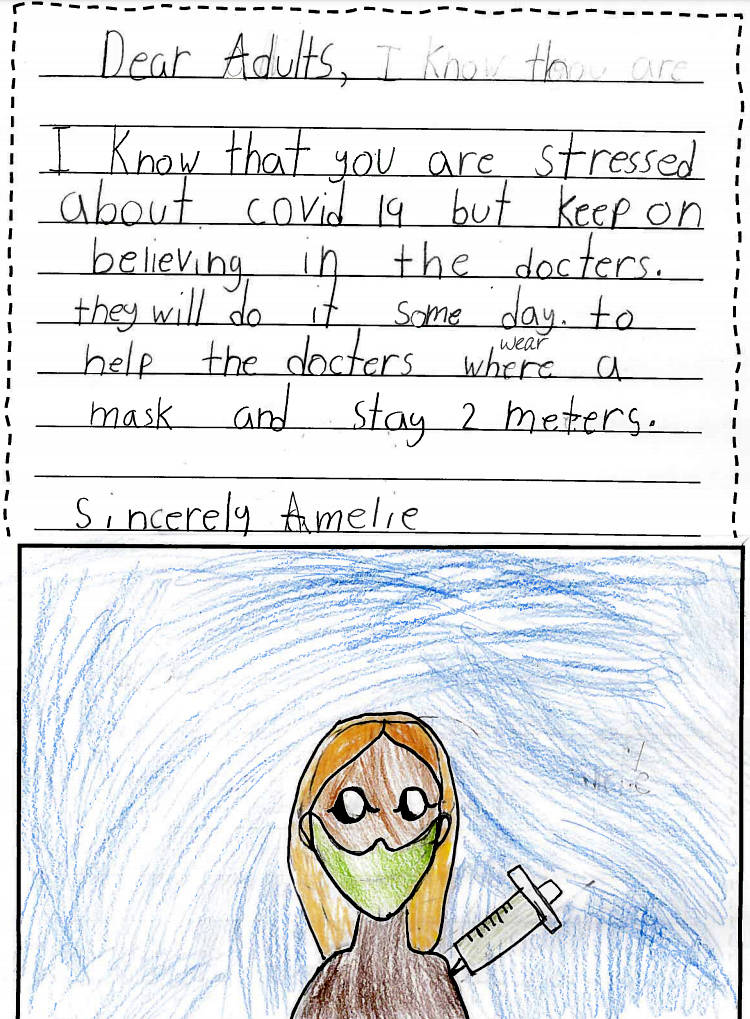 Dear Adults, I know are
I know that you are stressed
about covid 19 but keep on
believing in the docters.
they will do it some day. to
wear
help the docters where a
mask and stay 2 meters.
Sincerely Amelie